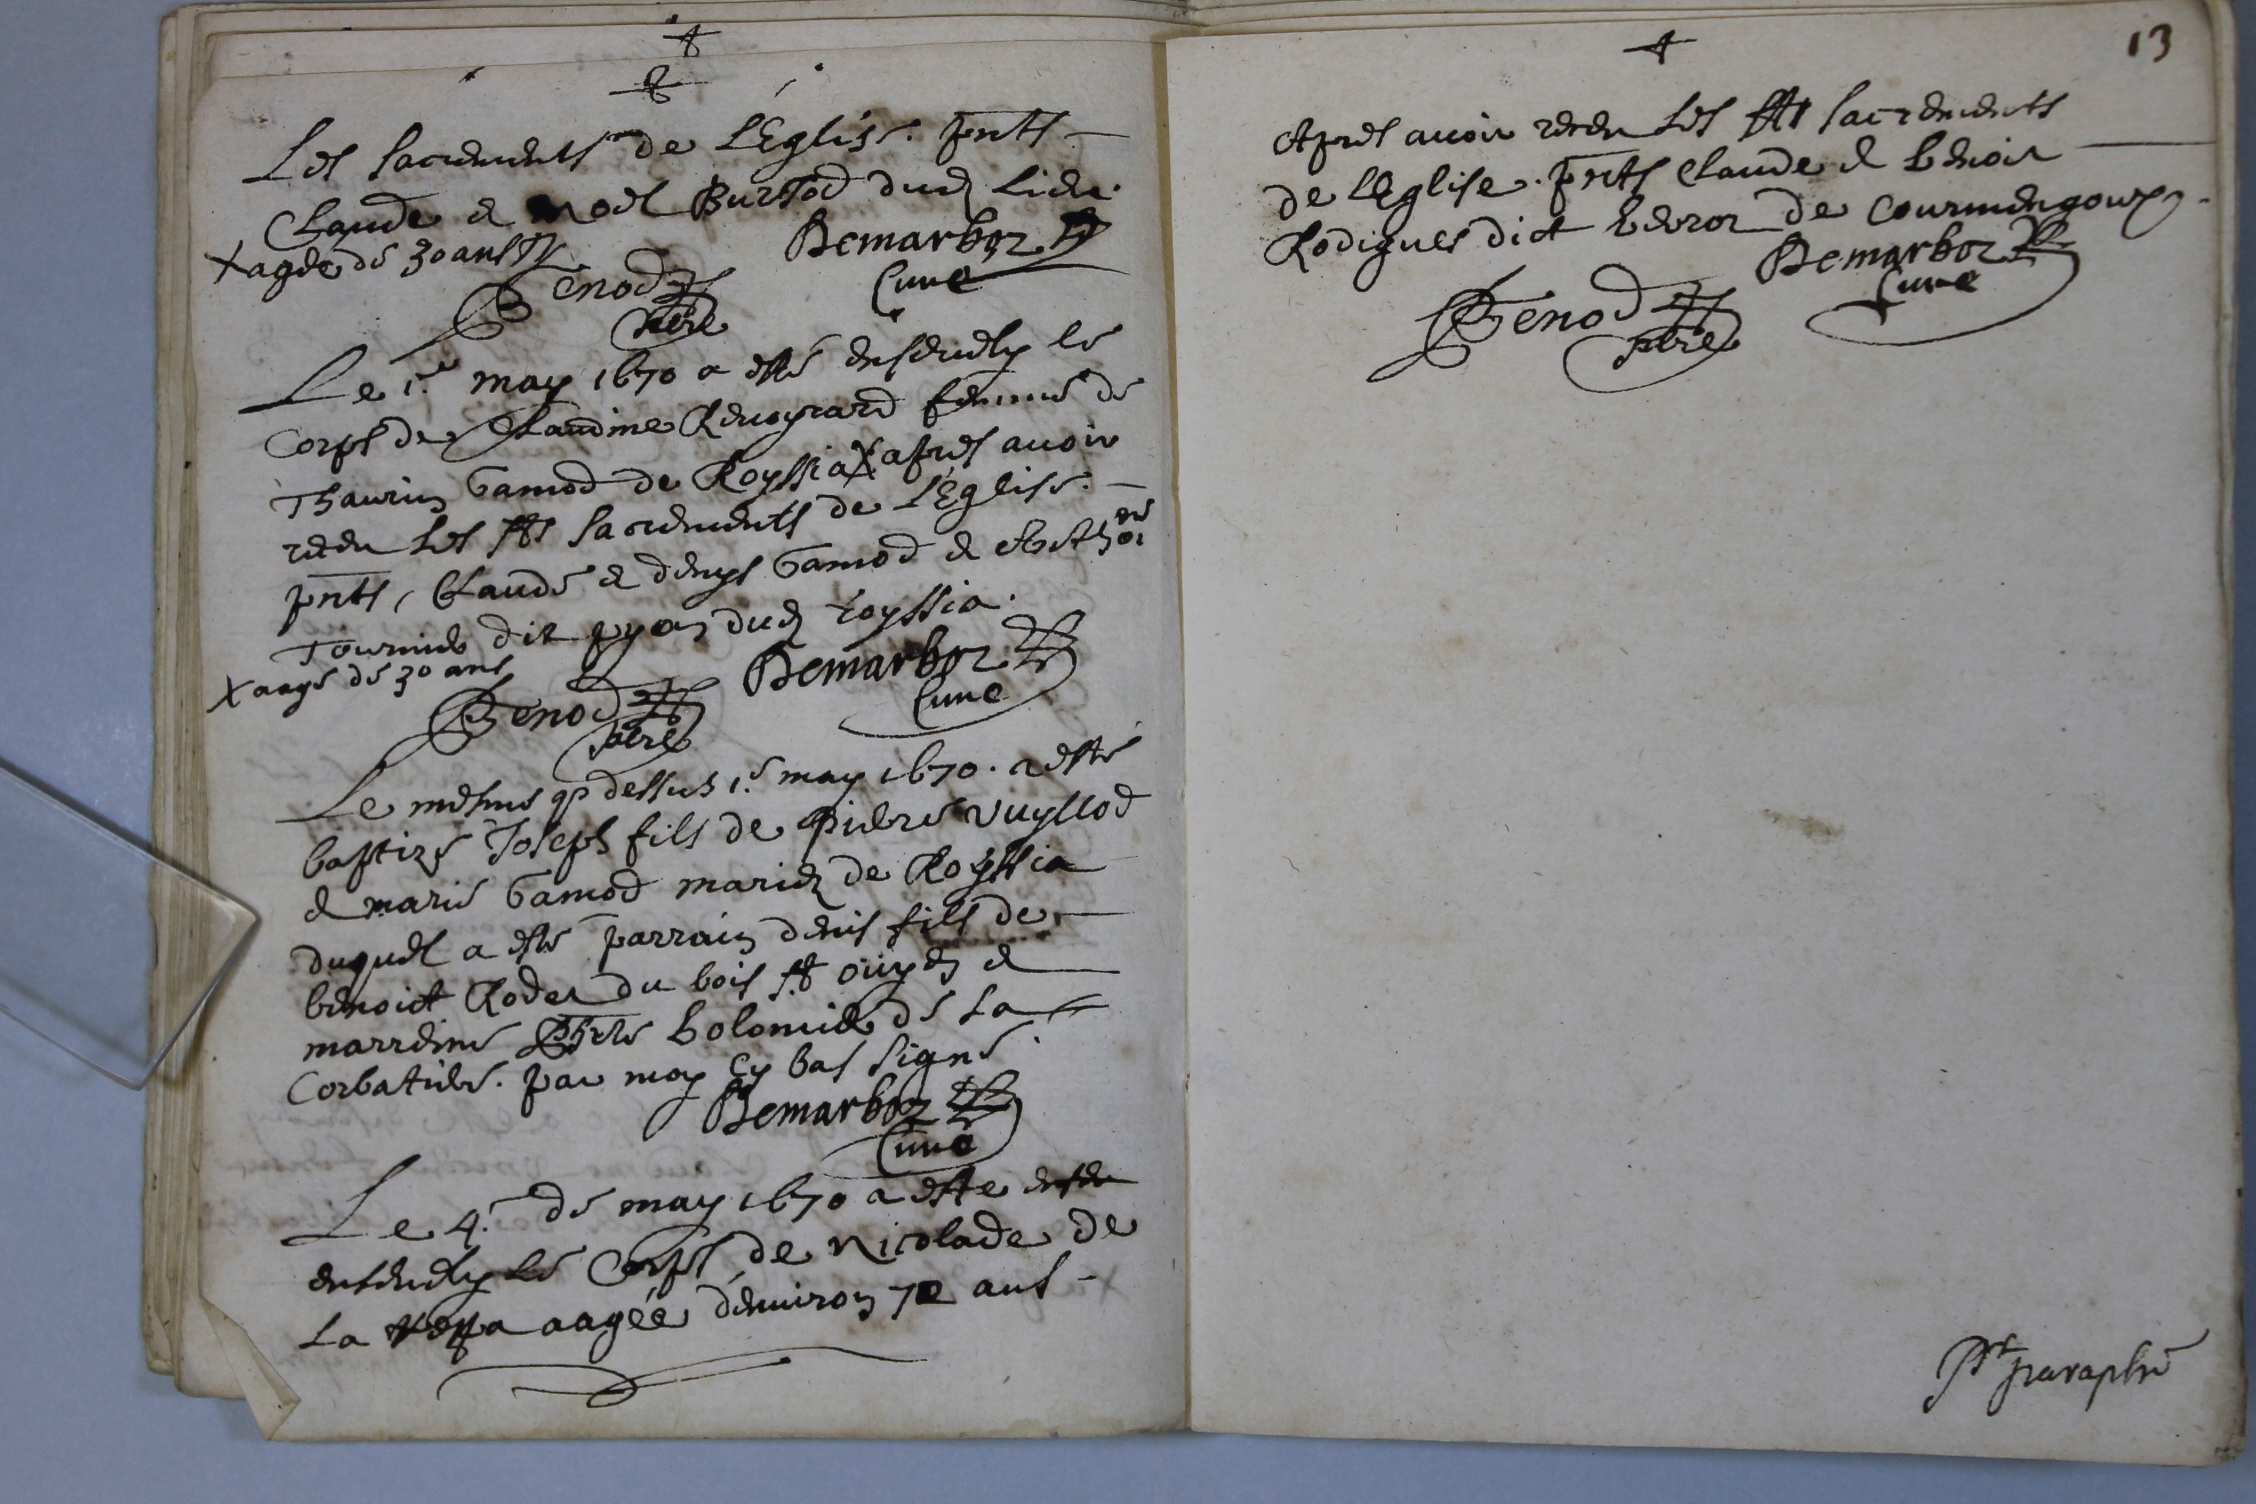 Les sacrements de l'Eglise. pnts
Claude & Noel Burtod dud lieu.
X agée de 30 ans
Benod Demarboz
pbre Curé
Le 1.er may 1670 a esté ensevely le
Corps de Claudine Revoyrard femme de
Thaurin Gamod de Royssia X apres avoir
receu les Sts sacrements de l'Eglise.
pnts, Claude & denys Gamod &
Tournier dit pyon dud royssia.
X aagé de 30 ans
Benod Demarboz
pbre Curé
Le mesme q dessus 1.er may 1670. a esté
baptizé Joseph fils de Pierre Vuyllod
& marie Gamod mariez de Royssia
duquel a esté parrain denis fils de
benoict Rodet du bois St ouyen &
marreine bolomier de la
Corbatiere. par moy cy bas signé.
Demarboz
Curé
Le 4.e de may 1670 a este enseu
ensevely le Corps de Nicolade de
la aagée d'environ 72 ans
13
Apres avoir receu les Sts sacrements
de l'Eglise. pnts Claude & benoit
Rodigues dict berror de Courmengoux.
Benod Demarboz
pbre Curé
paraphé